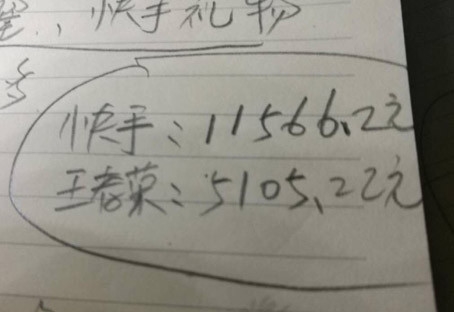 、快手礼物
快手：11566.2元
王春菊：5105.22元